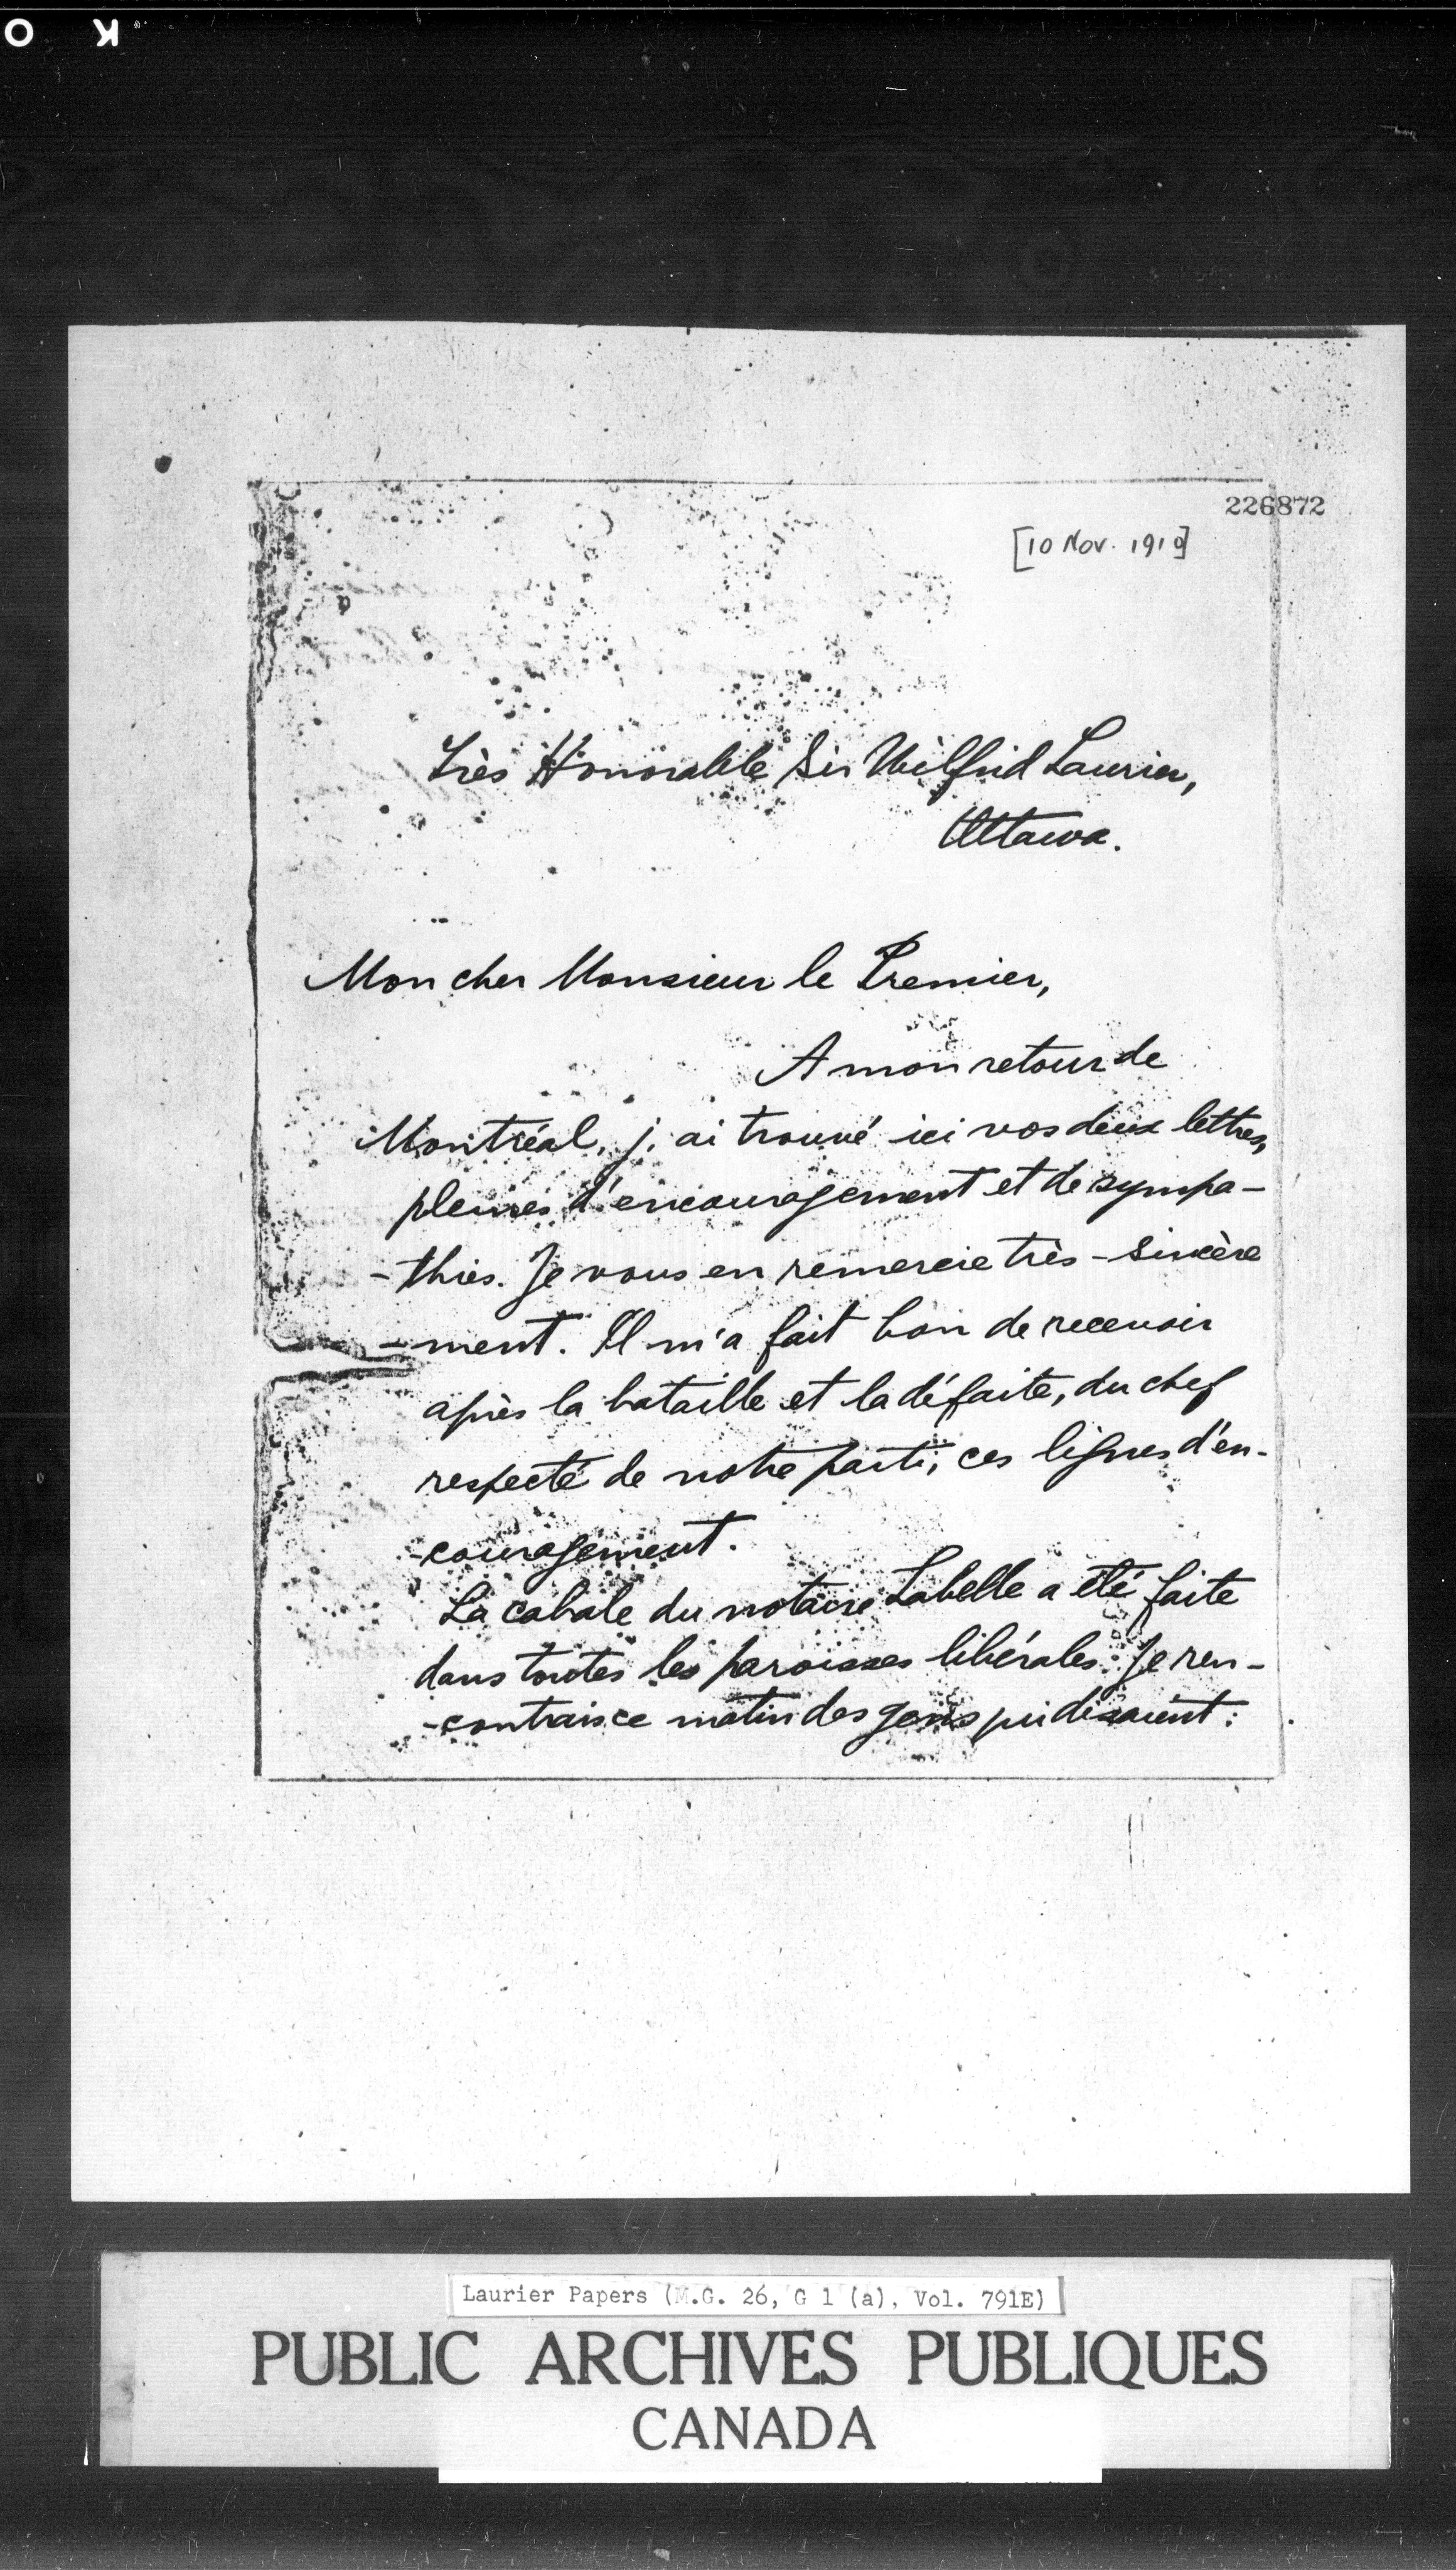 O K
226872
[10 Nov. 1910]
Très Honorable Sir Wilfrid Laurier,
Ottawa.
Mon cher Monsieur le Premier,
A mon retour de
Montréal, j'ai trouvé ici vos deux lettres,
pleines d'encouragement et de sympa-
-thies. Je vous en remercie très-sincère
-ment. Il m'a fait bon de recevoir
après la bataille et la défaite, du chef
respecté de notre parti, ces lignes d'en-
-couragement.
La cabale du notaire Labelle a été faite
dans toutes les paroisses libérales. Je ren-
-contrais ce matin des gens qui disaient:
Laurier Papers (M.G. 26, G 1 (a), Vol. 791E)
PUBLIC ARCHIVES PUBLIQUES
CANADA